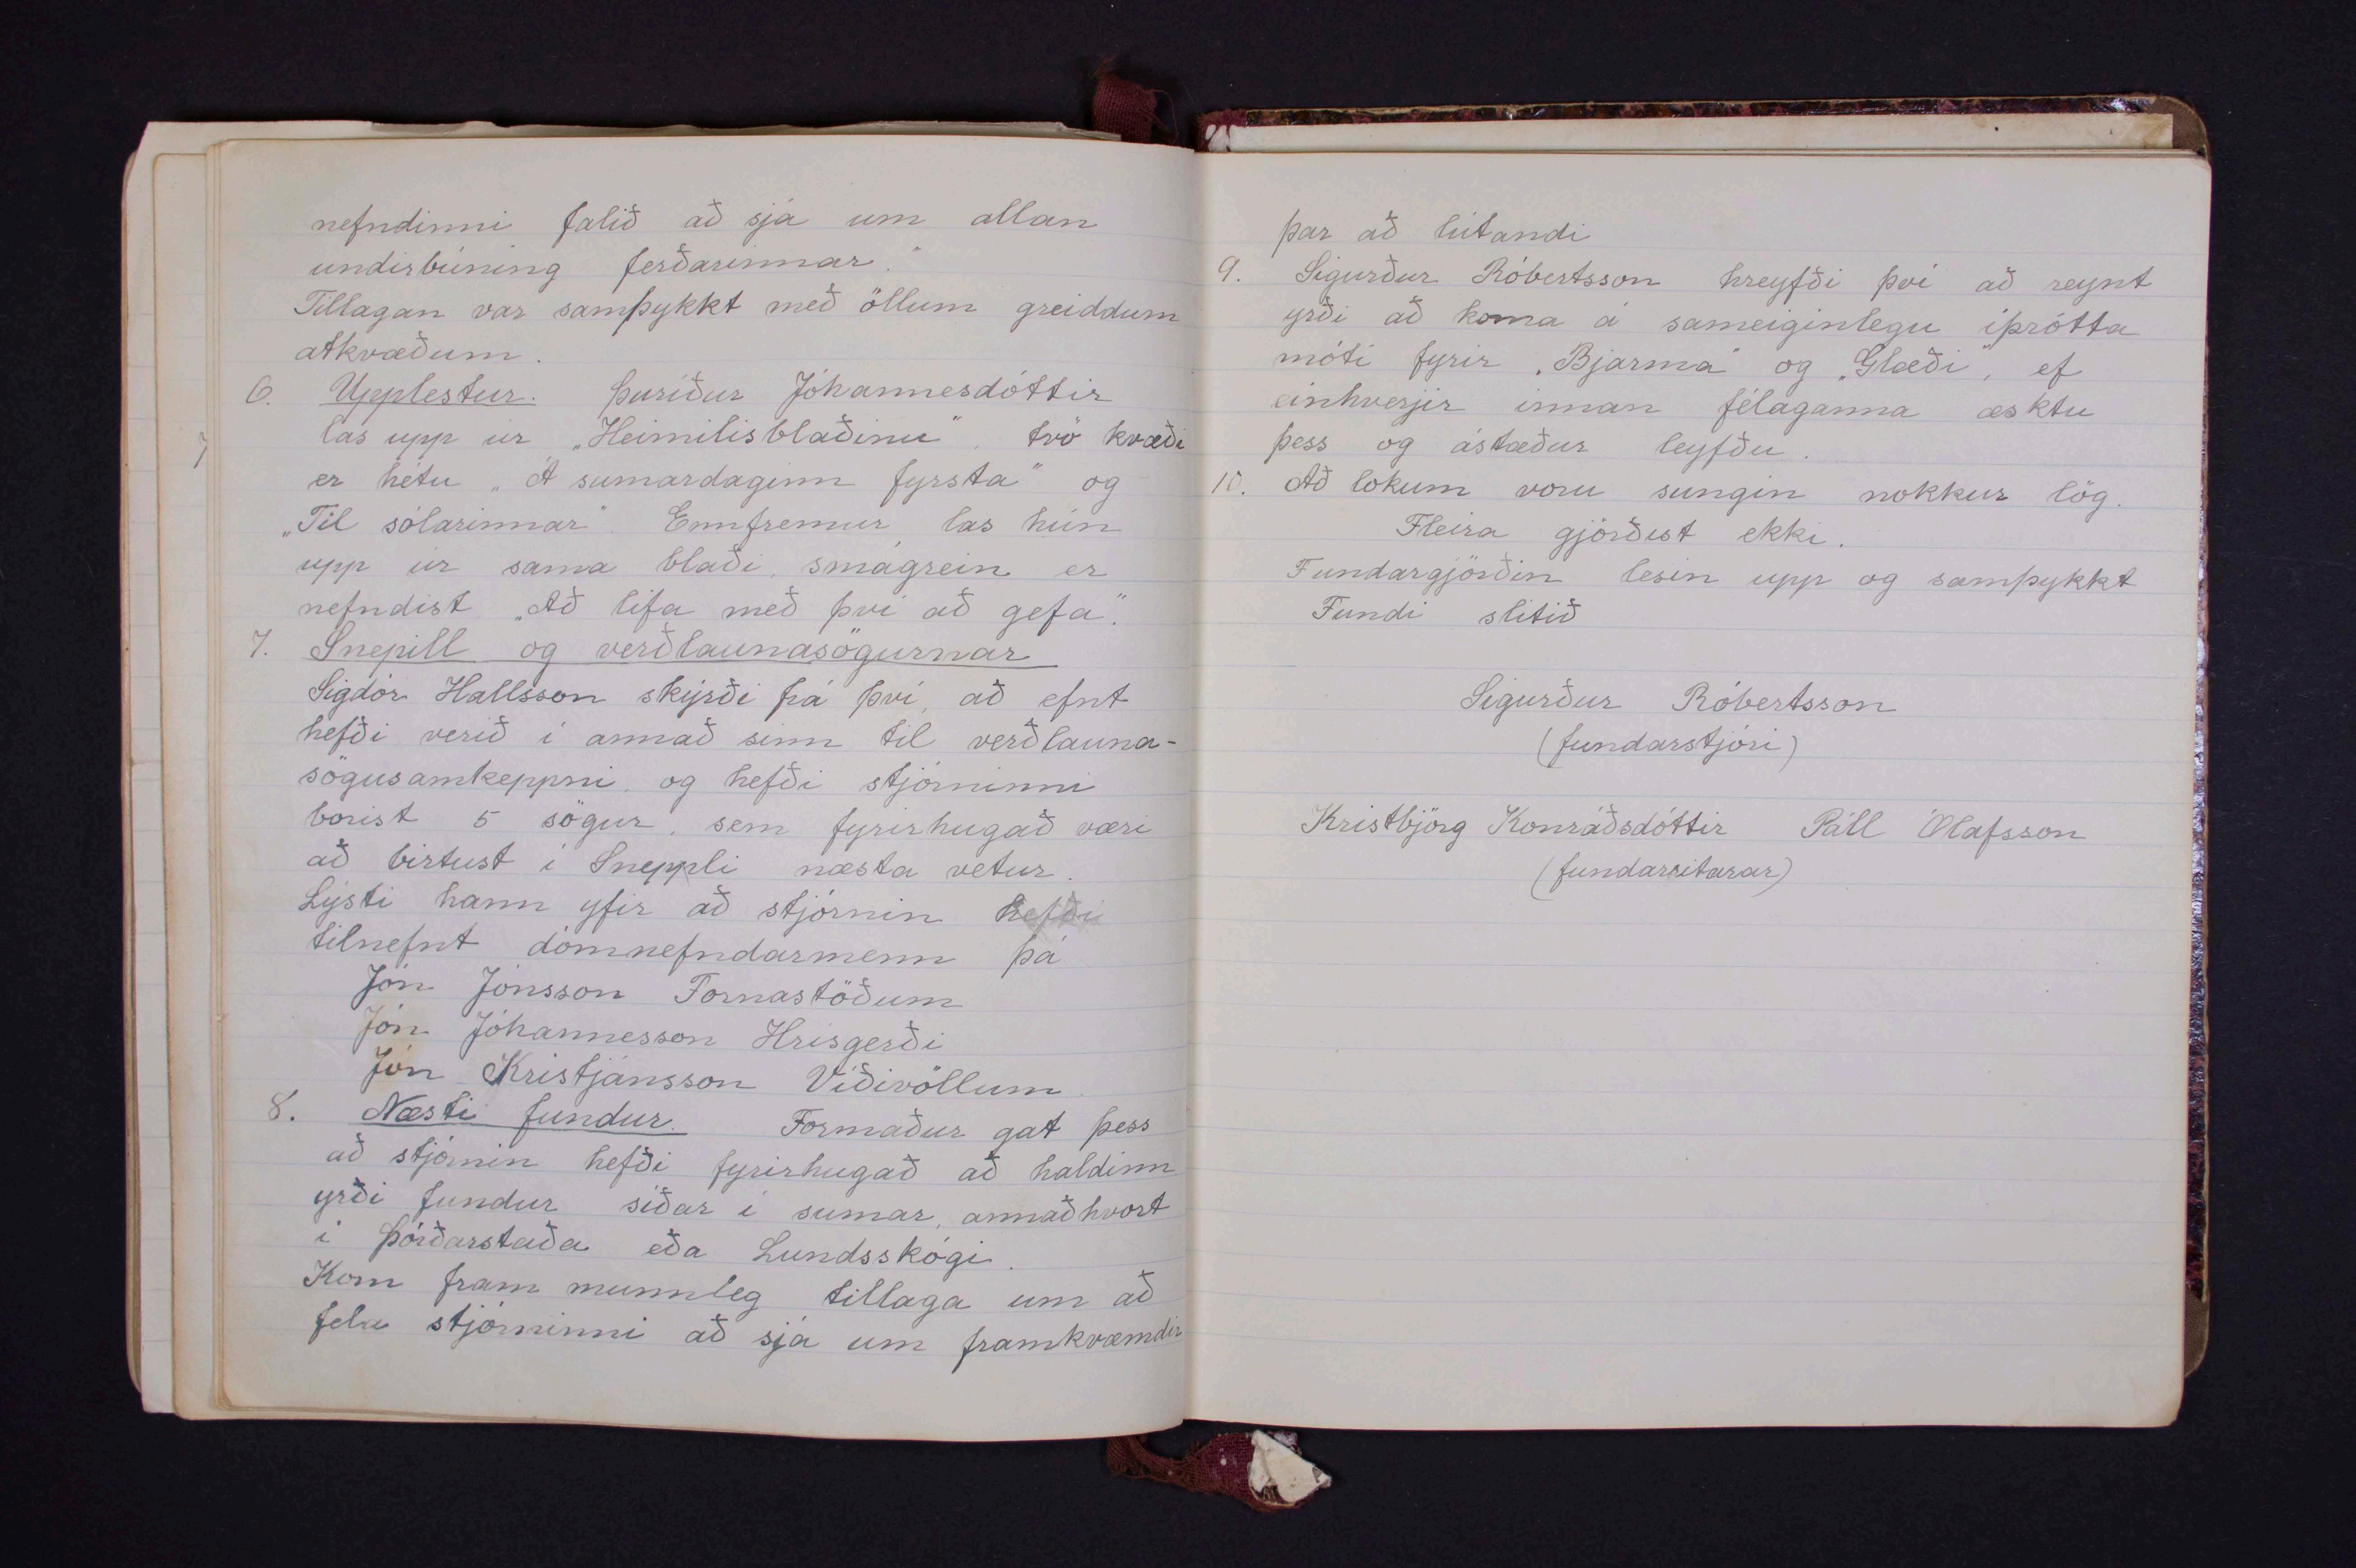 nefndinni falið að sjá um allan
undirbúning ferðarinnar."
Tillagan var samþykkt með öllum greiddum
atkvæðum.
6. Upplestur. Þuríður Jóhannesdóttir
las upp úr „Heimilisblaðinu", tvö kvæði
er hétu „Á sumardaginn fyrsta" og
„Til sólarinnar". Ennfremur las hún
upp úr sama blaði, smágrein er
nefndist „Að lifa með því að gefa".
7. Snepill og verðlaunasögurnar
Sigdór Hallsson skýrði frá því, að efnt
hefði verið í annað sinn til verðlauna-
sögusamkeppni, og hefði stjórninni
borist 5 sögur, sem fyrirhugað væri
að birtust í Sneppli næsta vetur.
Lýsti hann yfir að stjórnin hefði
tilnefnt dómnefndarmenn þá
Jón Jónsson Fornastöðum
Jón Jóhannesson Hrísgerði
Jón Kristjánsson Víðivöllum
8. Næsti fundur. Formaður gat þess
að stjórnin hefði fyrirhugað að haldinn
yrði fundur síðar í sumar, annaðhvort
í Þórðarstaða eða Lundsskógi.
Kom fram munnleg tillaga um að
fela stjórninni að sjá um framkvæmdir
þar að lútandi
9. Sigurður Róbertsson hreyfði því að reynt
yrði að koma á sameiginlegu íþrótta
móti fyrir „Bjarma" og „Glæði", ef
einhverjir innan félaganna æsktu
þess og ástæður leyfðu.
10. Að lokum voru sungin nokkur lög.
Fleira gjörðist ekki.
Fundargjörðin lesin upp og samþykkt
Fundi slitið
Sigurður Róbertsson
(fundarstjóri)
Kristbjörg Konráðsdóttir Páll Ólafsson
(fundarritarar)